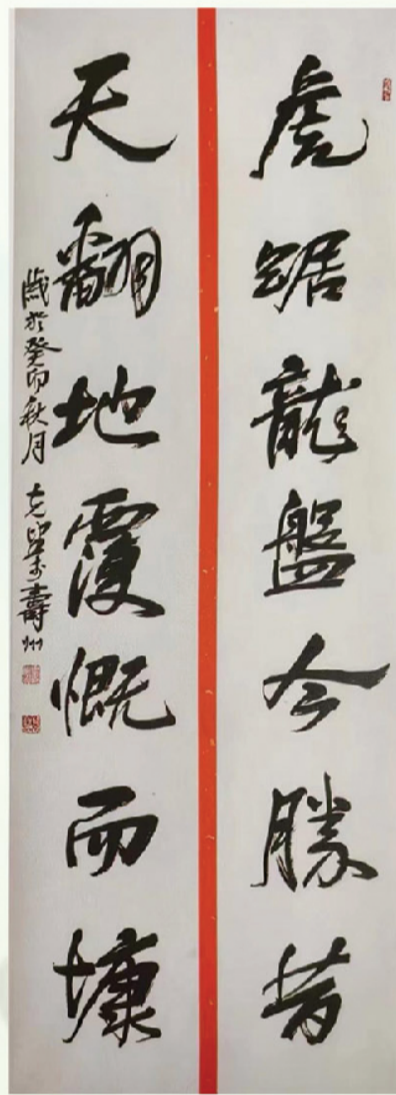 虎踞龍盤今勝昔
天翻地覆慨而慷
歲於癸卯秋月
壽州